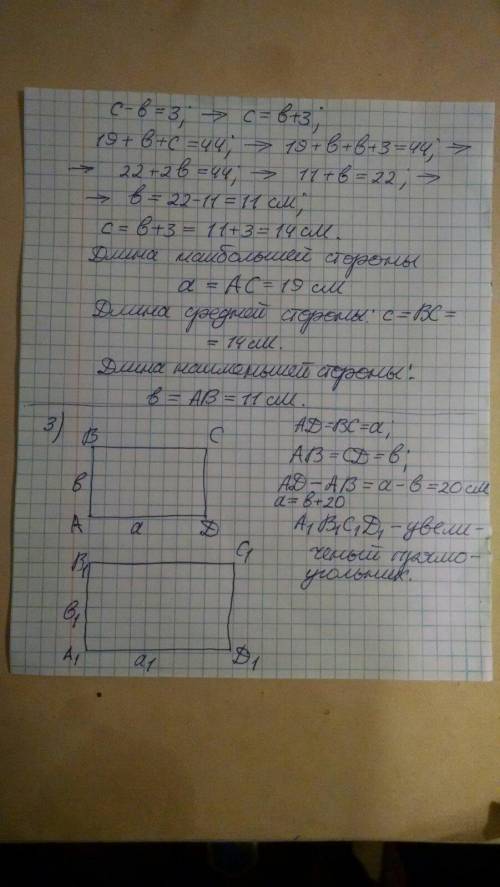 c-в=3; → c=в+3;
19+в+c=44; → 19+в+в+3=44; →
→ 22+2в=44; → 11+в=22; →
→ в=22-11=11 см;
c=в+3=11+3=14 см.
Длина наибольшей стороны
a=AC=19 см
Длина средней стороны: c=BC=
=14 см.
Длина наименьшей стороны:
в=AB=11 см.
3)
B C
в
A a D
AD=BC=a;
AB=CD=в;
AD-AB=a-в=20 см
a=в+20
A₁B₁C₁D₁-увели-
ченый прямо-
угольник.
B₁ C₁
в₁
A₁ a₁ D₁